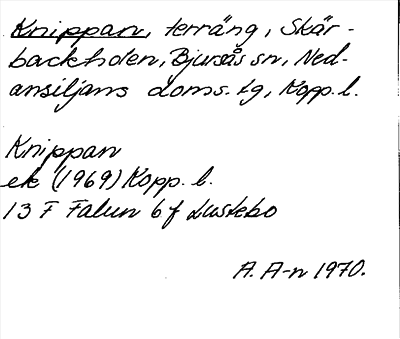 Knippan, terräng, Skär-
backheden, Bjursås sn, Ned-
ansiljans doms. tg, Kopp. l.
Knippan
ek (1969) Kopp. l.
13 F Falun 6 f Lustebo
A. A-n 1970.